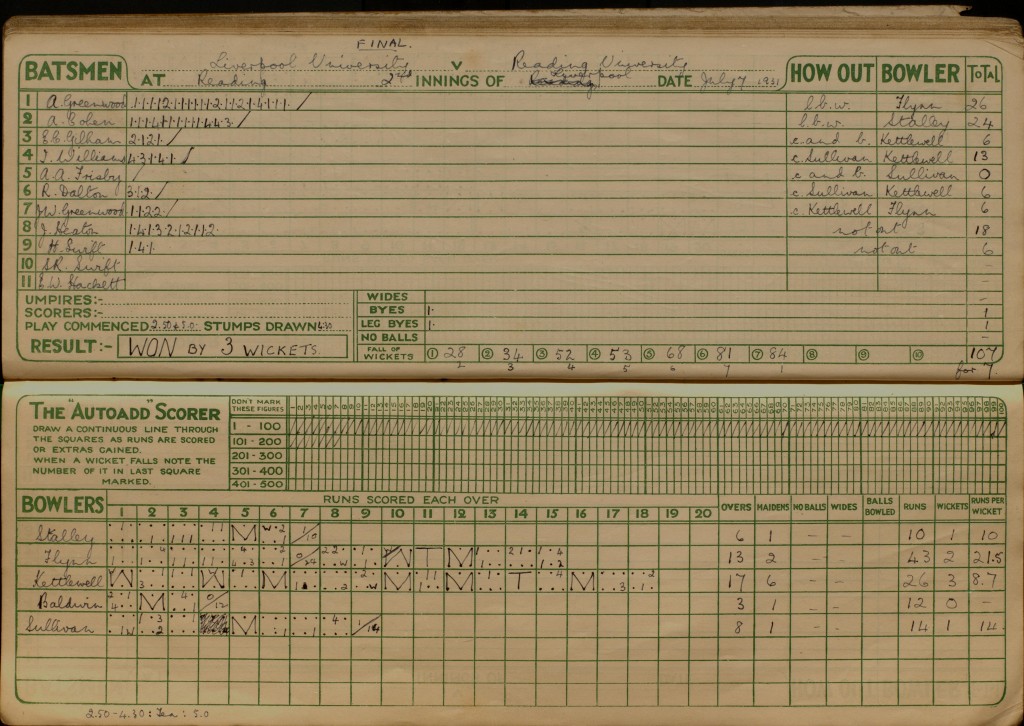 FINAL.
Liverpool University v Reading University
BATSMEN AT Reading 2nd INNINGS OF Liverpool DATE July 7 1931 HOW OUT BOWLER TOTAL
1 A. Greenwood 1·1·1·1·2·1·1·1·1·1·1·2·1·1·2·1·4·1·1·1· / l.b.w. Flynn 26
2 A. Cohen 1·1·1·4·1·1·1·1·1·1·4·4·3· / l.b.w. Stalley 24
3 E.C. Gilham 2·1·2·1· / c. and b. Kettlewell 6
4 T. Williams 4·3·1·4·1· / c. Sullivan Kettlewell 13
5 A.A. Frisby / c. and b. Sullivan 0
6 R. Dalton 3·1·2· / c. Sullivan Kettlewell 6
7 J.W. Greenwood 1·1·2·2· / c. Kettlewell Flynn 6
8 J. Heaton 1·4·1·3·2·1·2·1·1·2· not out 18
9 H. Swift 1·4·1· not out 6
10 S.R. Swift -
11 E.W. Hackett -
UMPIRES:- WIDES -
SCORERS:- BYES 1· 1
PLAY COMMENCED 2.50 & 5.0 STUMPS DRAWN 4.30 LEG BYES 1· 1
NO BALLS -
RESULT:- WON BY 3 WICKETS. FALL OF WICKETS 1 28 2 34 3 52 4 53 5 68 6 81 7 84 8 9 10 107
2 3 4 5 6 7 1 for 7.
THE "AUTOADD" SCORER DON'T MARK THESE FIGURES
DRAW A CONTINUOUS LINE THROUGH 1 - 100
THE SQUARES AS RUNS ARE SCORED 101 - 200
OR EXTRAS GAINED. 201 - 300
WHEN A WICKET FALLS NOTE THE 301 - 400
NUMBER OF IT IN LAST SQUARE 401 - 500
MARKED.
BOWLERS RUNS SCORED EACH OVER
1 2 3 4 5 6 7 8 9 10 11 12 13 14 15 16 17 18 19 20 OVERS MAIDENS NO BALLS WIDES BALLS BOWLED RUNS WICKETS RUNS PER WICKET
Stalley 1/10 6 1 - - 10 1 10
Flynn 13 2 - - 43 2 21.5
Kettlewell 17 6 - - 26 3 8.7
Baldwin 0/12 3 1 - - 12 0 -
Sullivan 1/14 8 1 - - 14 1 14
2.50-4.30: Tea: 5.0